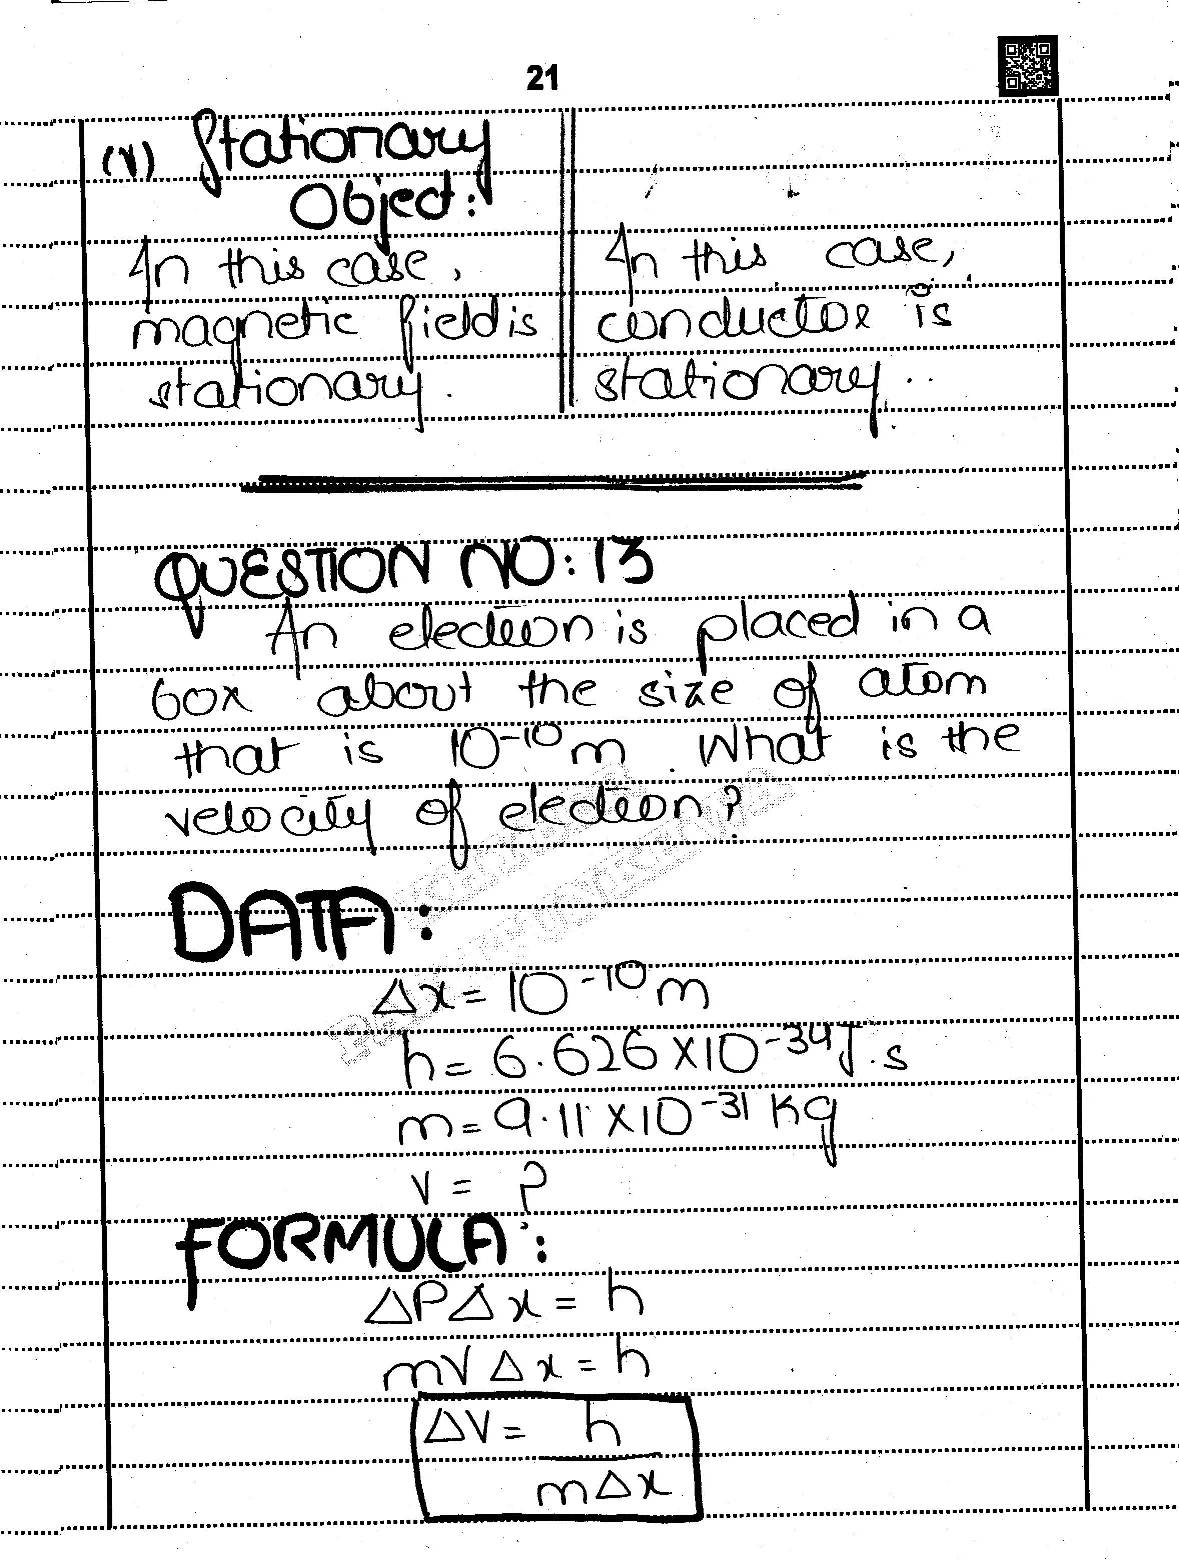 21
(v) Stationary
Object:
In this case,
magnetic field is
stationary.
In this case,
conductor is
stationary.
QUESTION NO: 13
An electron is placed in a
box about the size of atom
that is 10⁻¹⁰m. What is the
velocity of electron?
DATA:
Δx = 10⁻¹⁰m
h = 6.626 X10⁻³⁴J.s
m = 9.11 X10⁻³¹ Kg
v = ?
FORMULA:
ΔPΔx = h
mVΔx = h
ΔV = h
mΔx